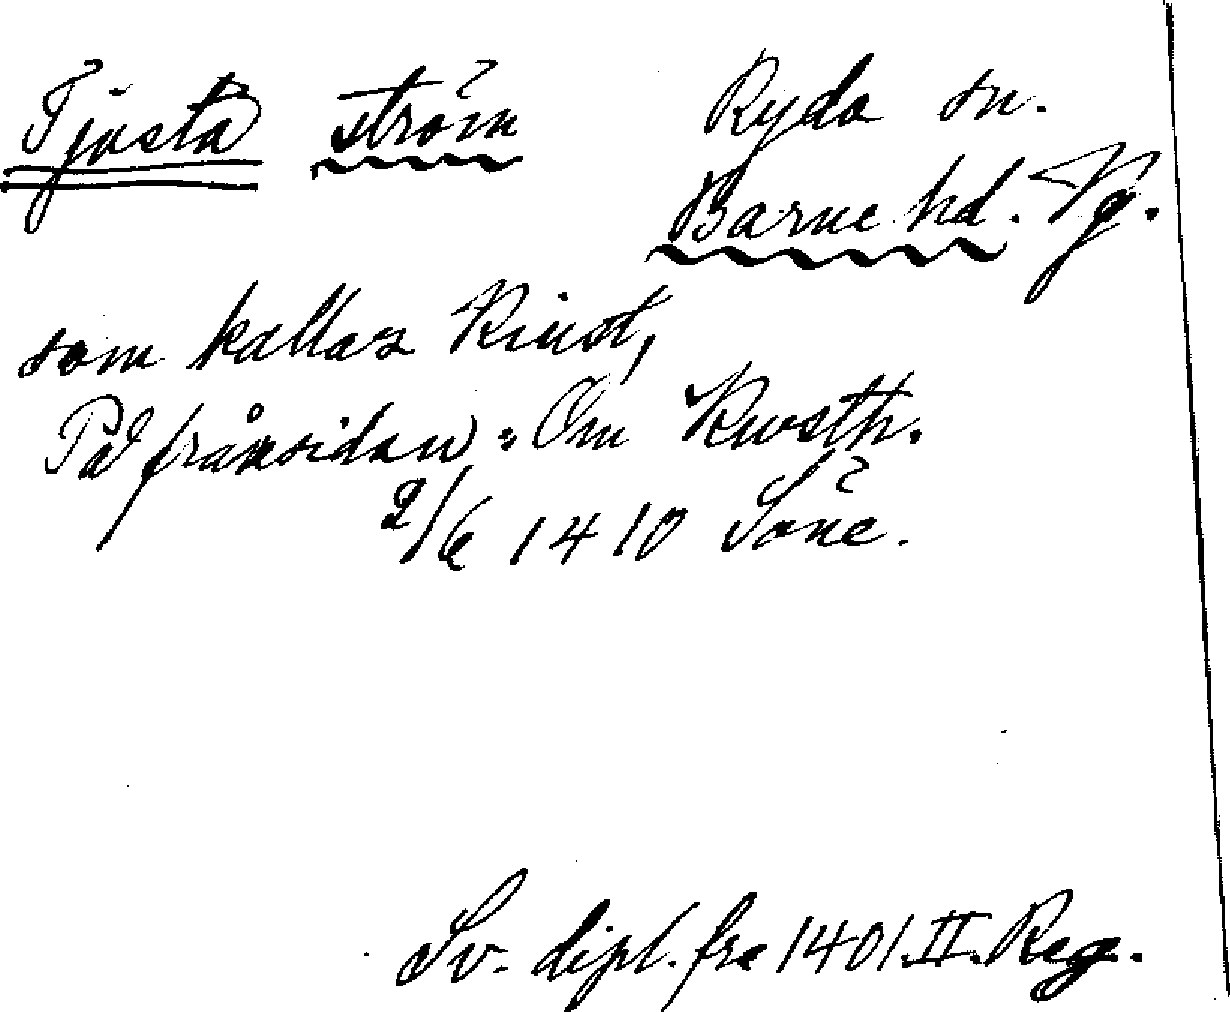 Tjusta ström Ryda sn.
Barne hd. Vg.
som kallas Kiust,
På frånsidan: Om Kwsth.
2/6 1410 Sōne.
Sv. dipl. fr. 1401. II. Reg.